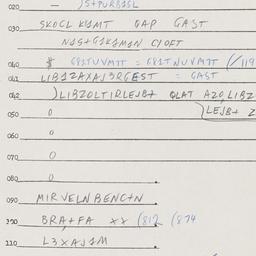 020 — )S+PURB1SL
030 SKOCL K1AMT GAP GAST
N1S+G1K1M1N CYOFT
040 $ G81TUVM7T = G81TNUVM7T (/119
041 LIB1ZAXAJ3RGEST = GAST
042 )LIBZOLTIRLEJB+ QLAT AZO,LIBZ
)LEJB+ Z
050 0
060 0
070 0
080
090 MIRVELNBENC+N
100 BRA+FA XX (812 (874
110 L3XAJ1M